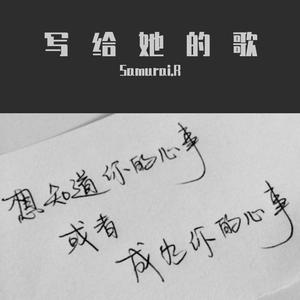 写给她的歌
Samurai.R
想知道你的心事
或者
成为你的心事